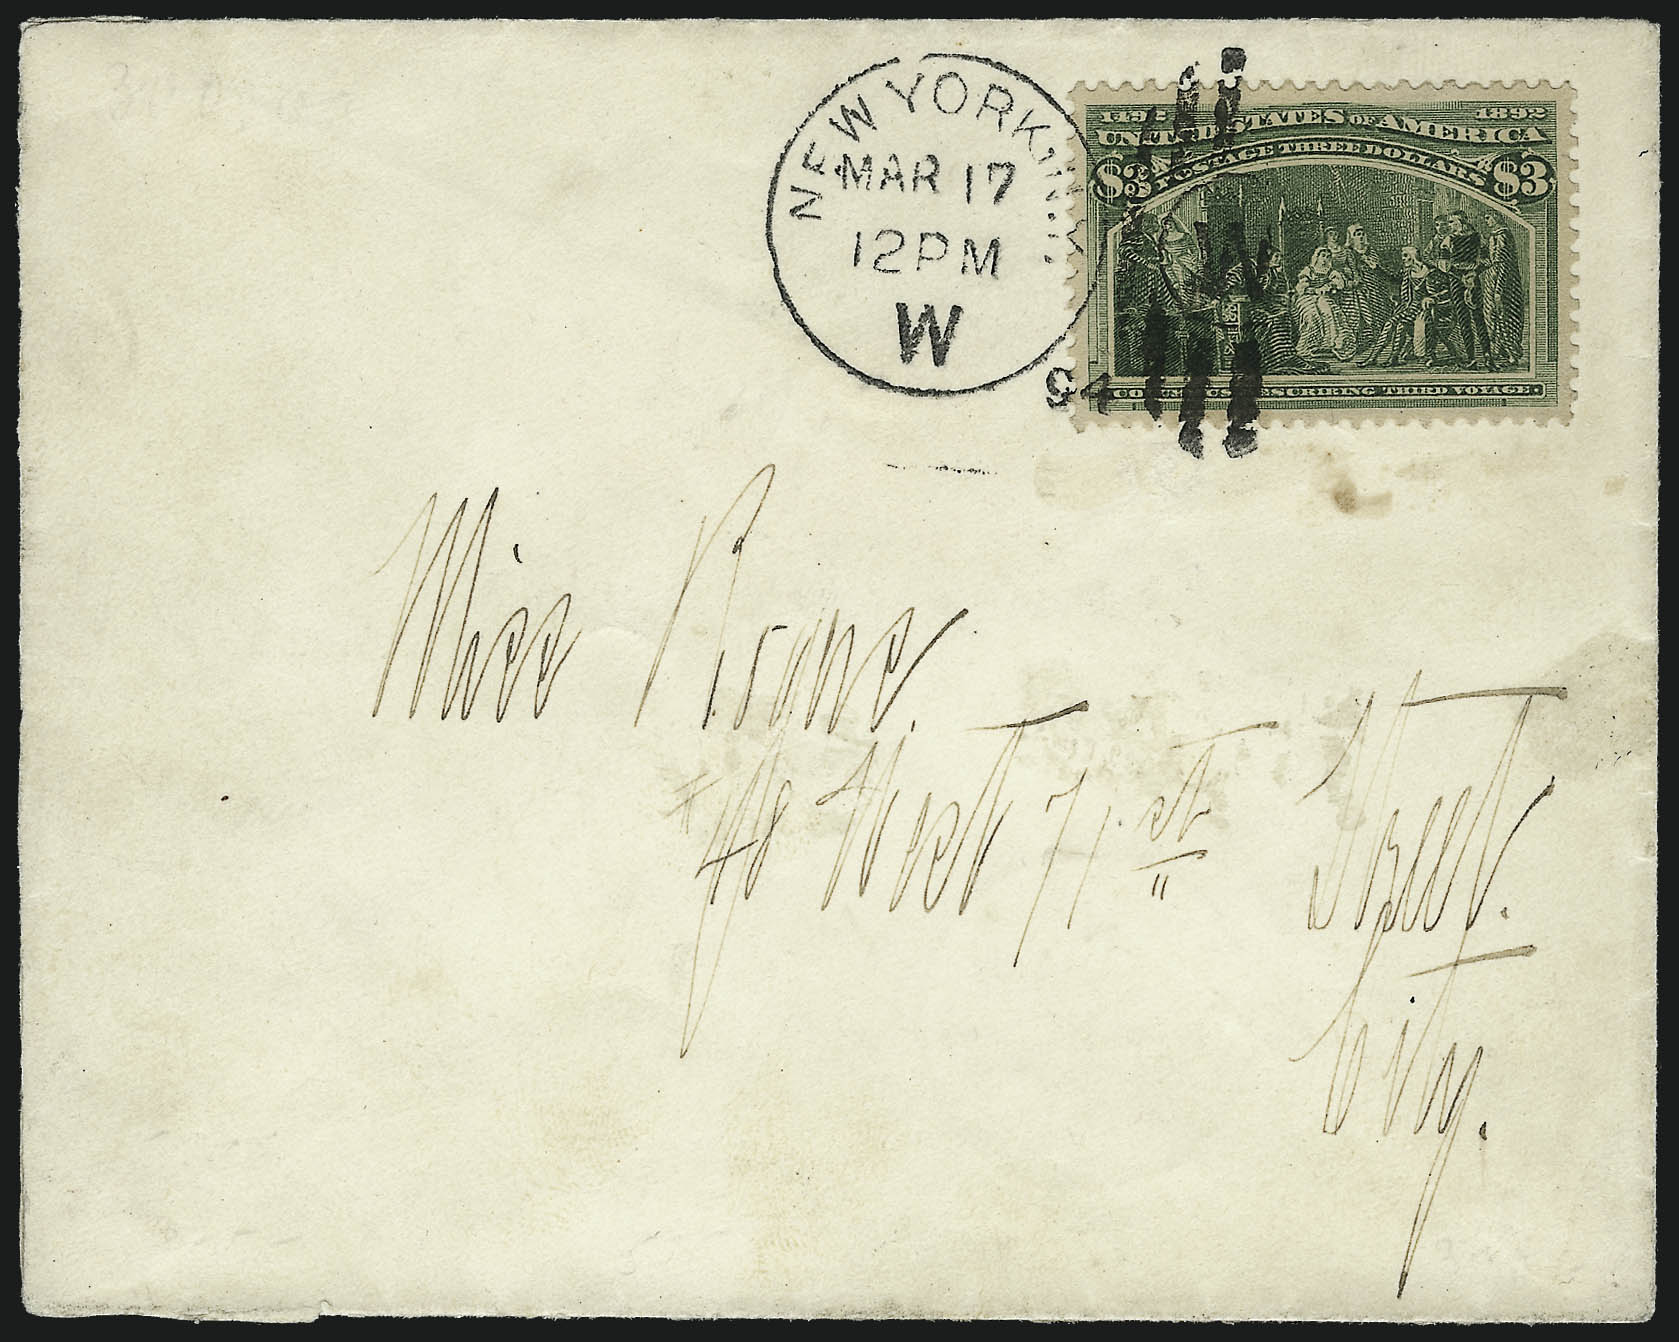 NEW YORK, N.Y.
MAR 17
12PM
W
94
1492 1892
UNITED STATES OF AMERICA
$3 POSTAGE THREE DOLLARS $3
COLUMBUS DESCRIBING THIRD VOYAGE.
Miss
48 West 71st Street.
City.